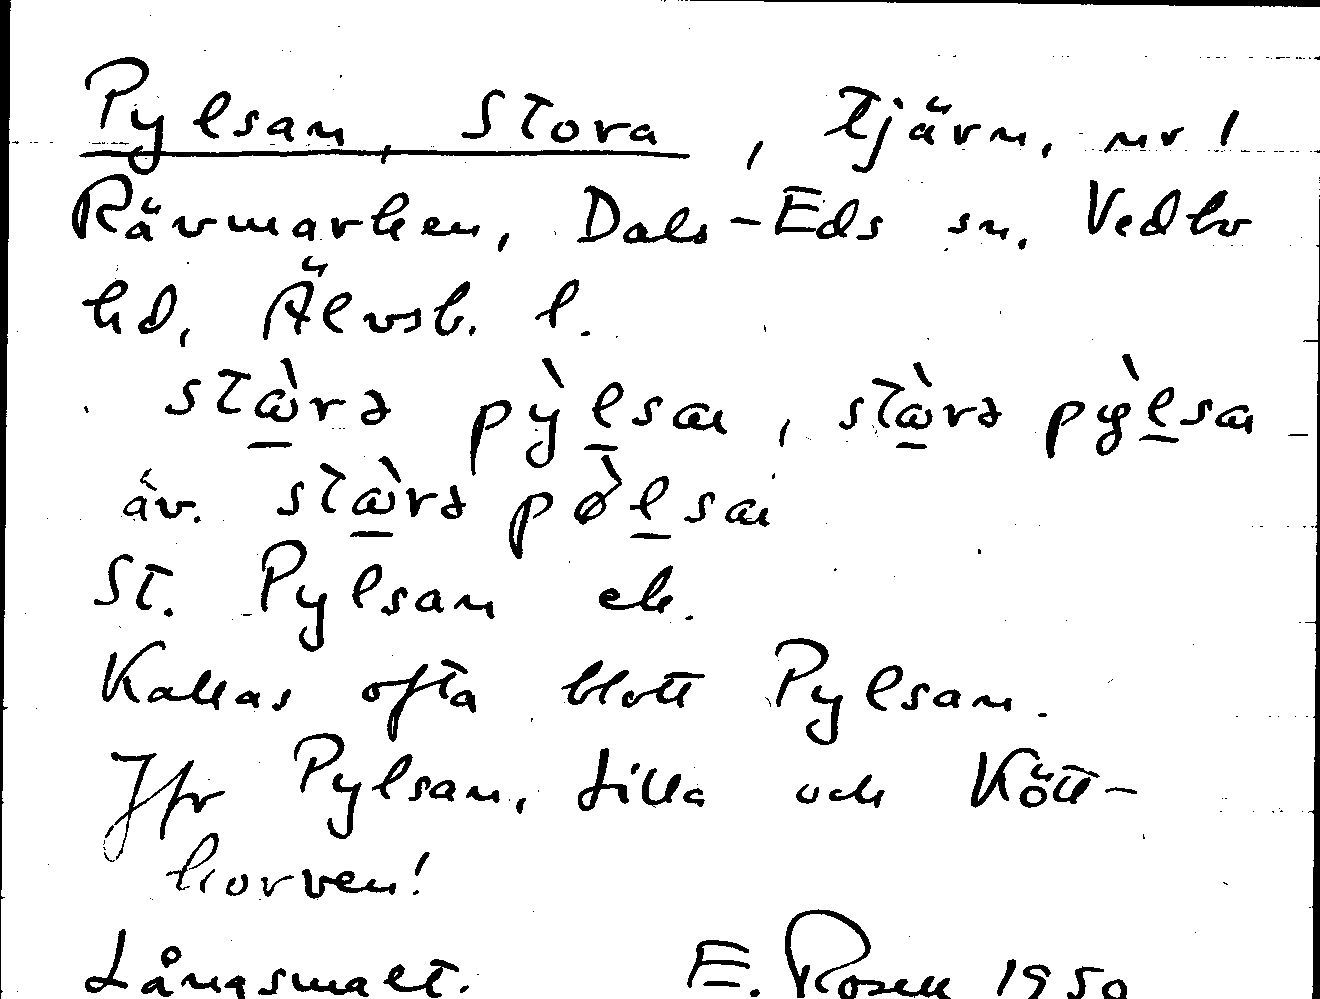 Pylsan, Stora, tjärn, nr 1
Rävmarken, Dals-Eds sn. Vedbo
hd, Älvsb. l.
stὼ̲rə pỳl̲sαι, stὼ̲rə pỳl̲sαι
äv. stὼ̲rə pø̀l̲sαι
St. Pylsan ek.
Kallas ofta blott Pylsan.
Jfr Pylsan, Lilla och Kött-
korven!
Långsmalt. E. Rosell 1950